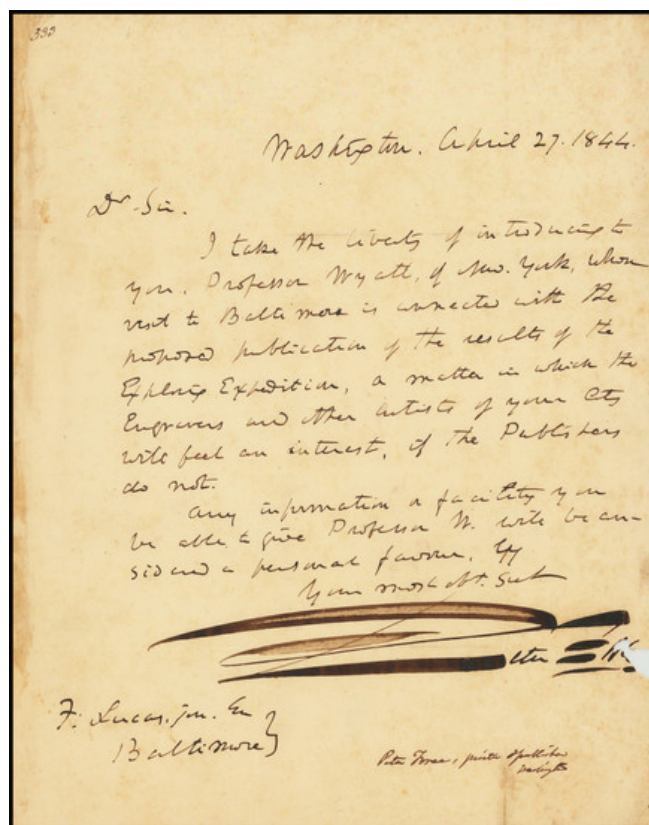 333
Washington. April 27. 1844.
Dr. Sir.
I take the liberty of introducing to
you. Professor Wyatt, of New. York, whose
visit to Baltimore is connected with the
proposed publication of the results of the
Exploring Expedition, a matter in which the
Engravers and other artists of your City
will feel an interest, if the Publishers
do not.
Any information or facility you
be able to give Professor W. will be con-
sidered a personal favour, by
Your most obt. Sert
F. Lucas. jun. Esq
Baltimore
Peter Force, printer & publisher
Washington